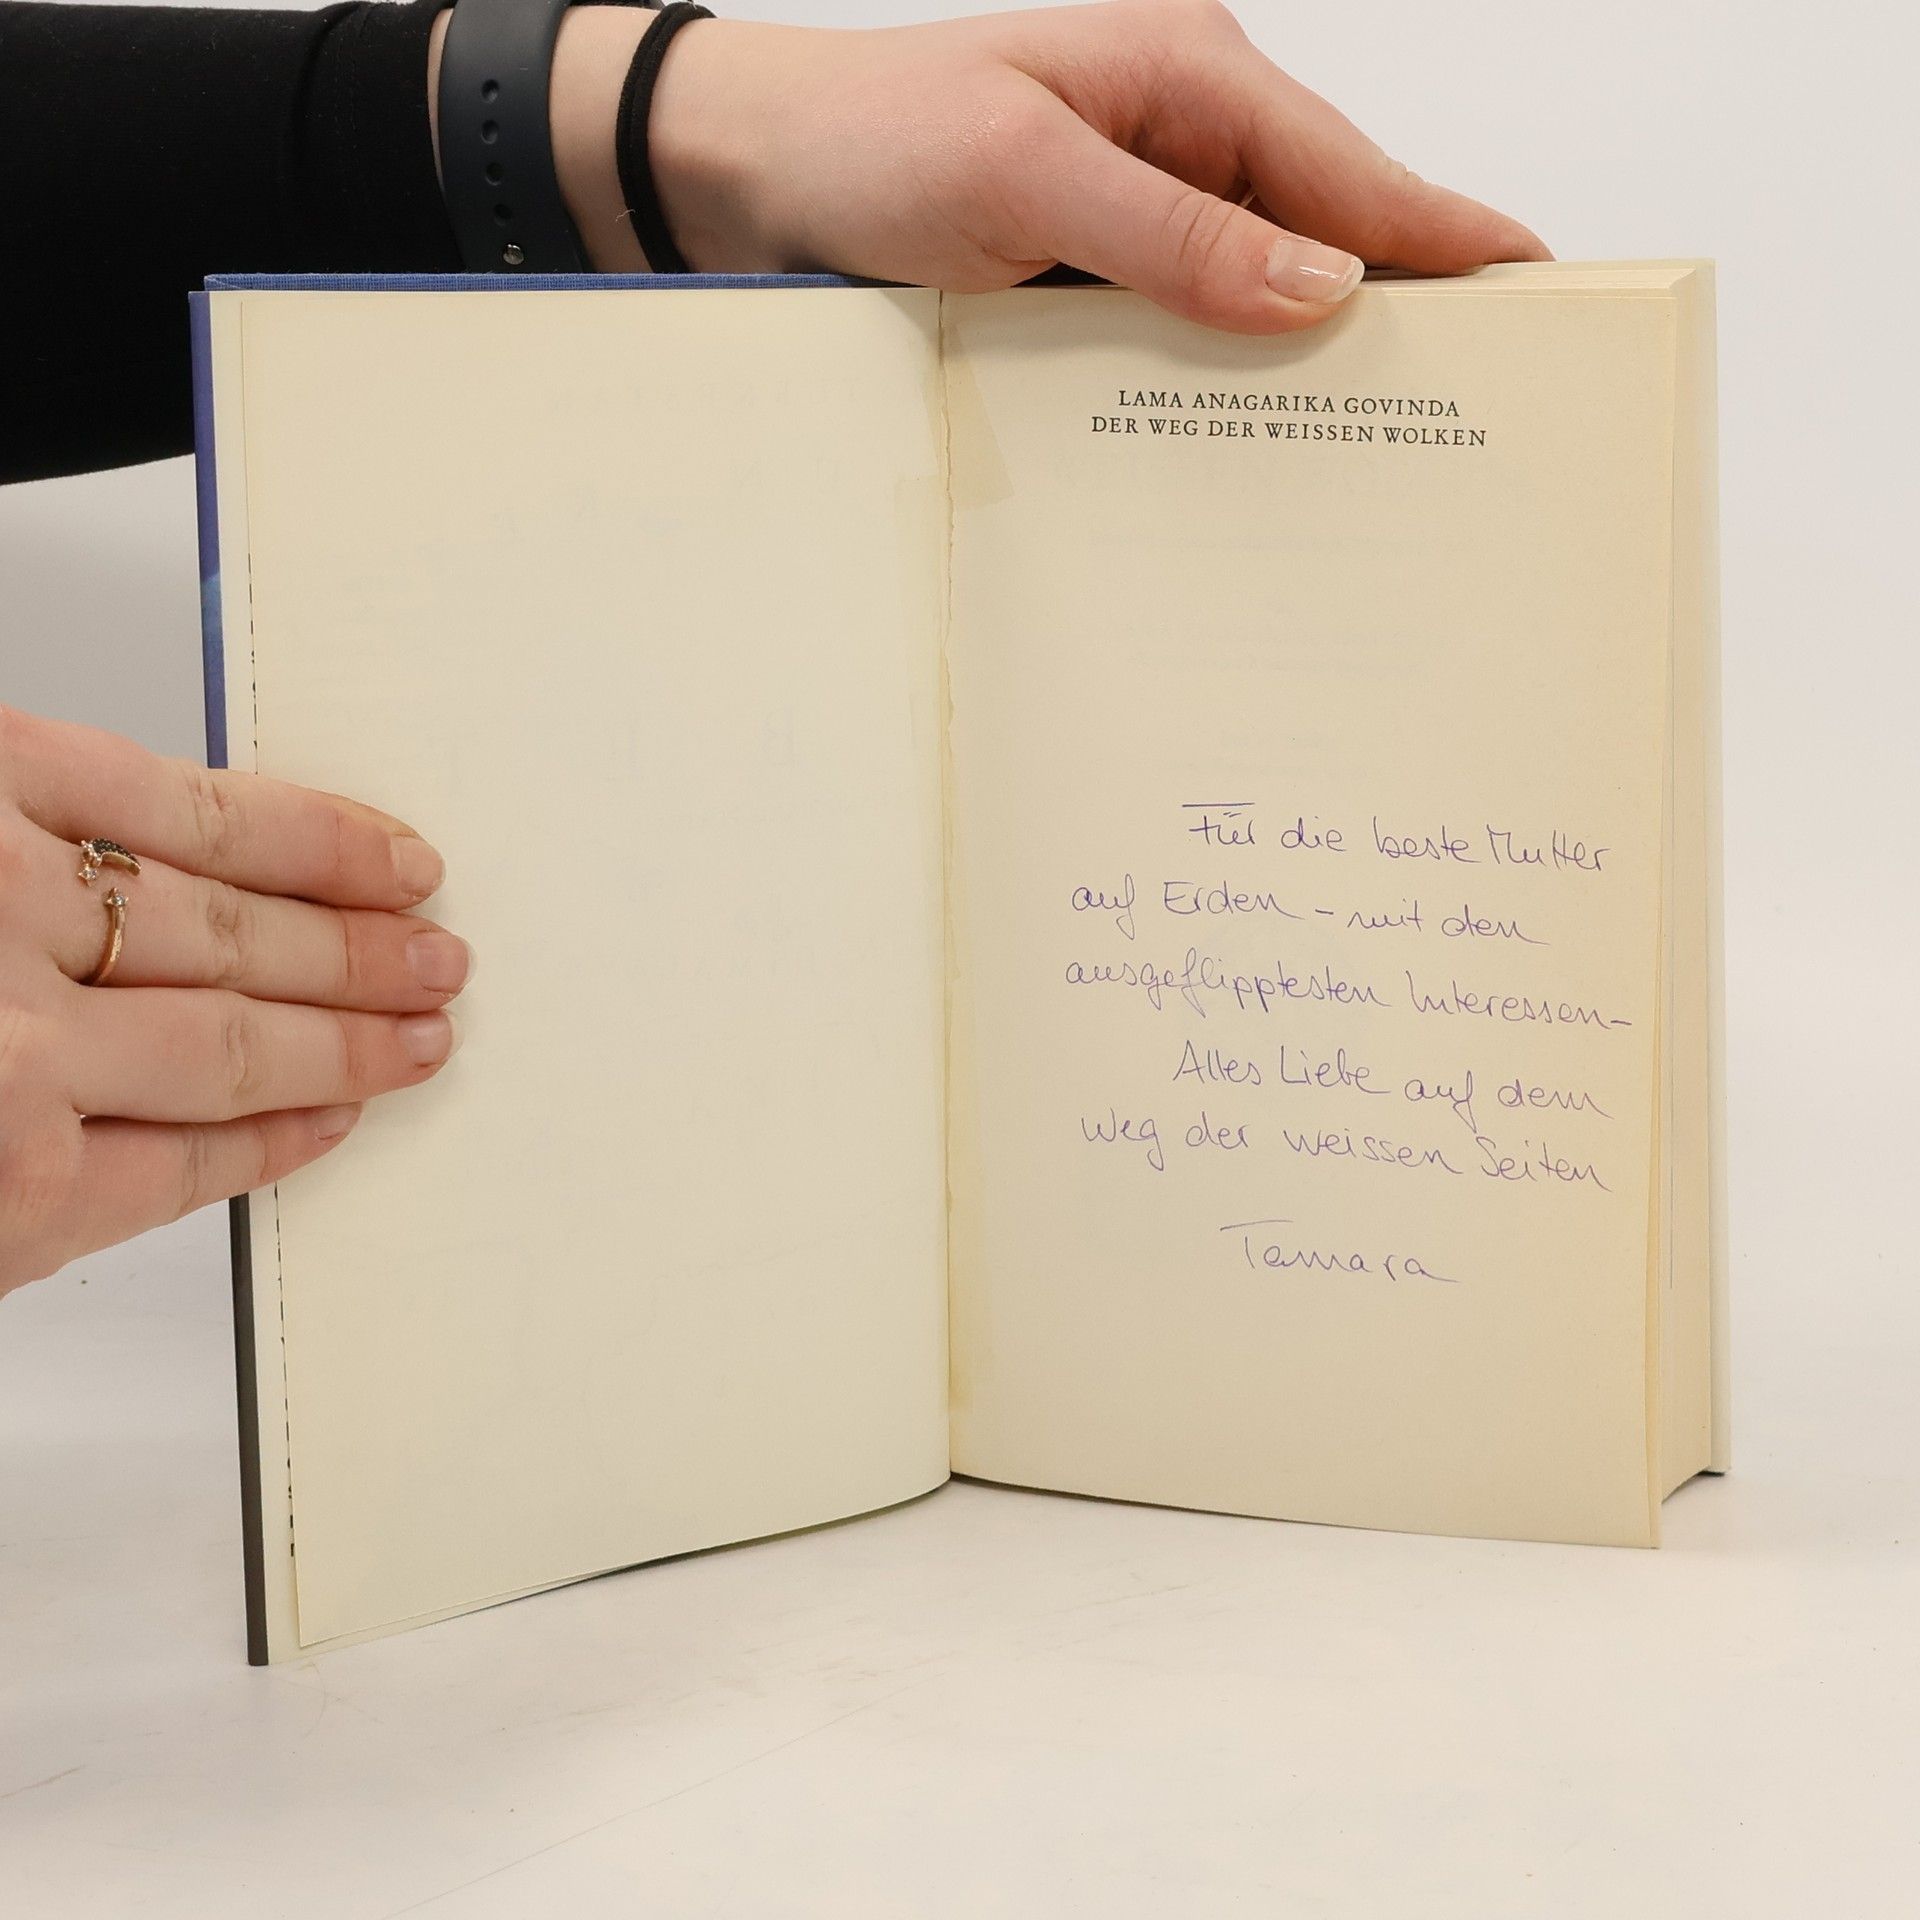 LAMA ANAGARIKA GOVINDA
DER WEG DER WEISSEN WOLKEN
Für die beste Mutter
auf Erden - mit den
ausgeflipptesten Interessen-
Alles Liebe auf dem
Weg der weissen Seiten
Tamara